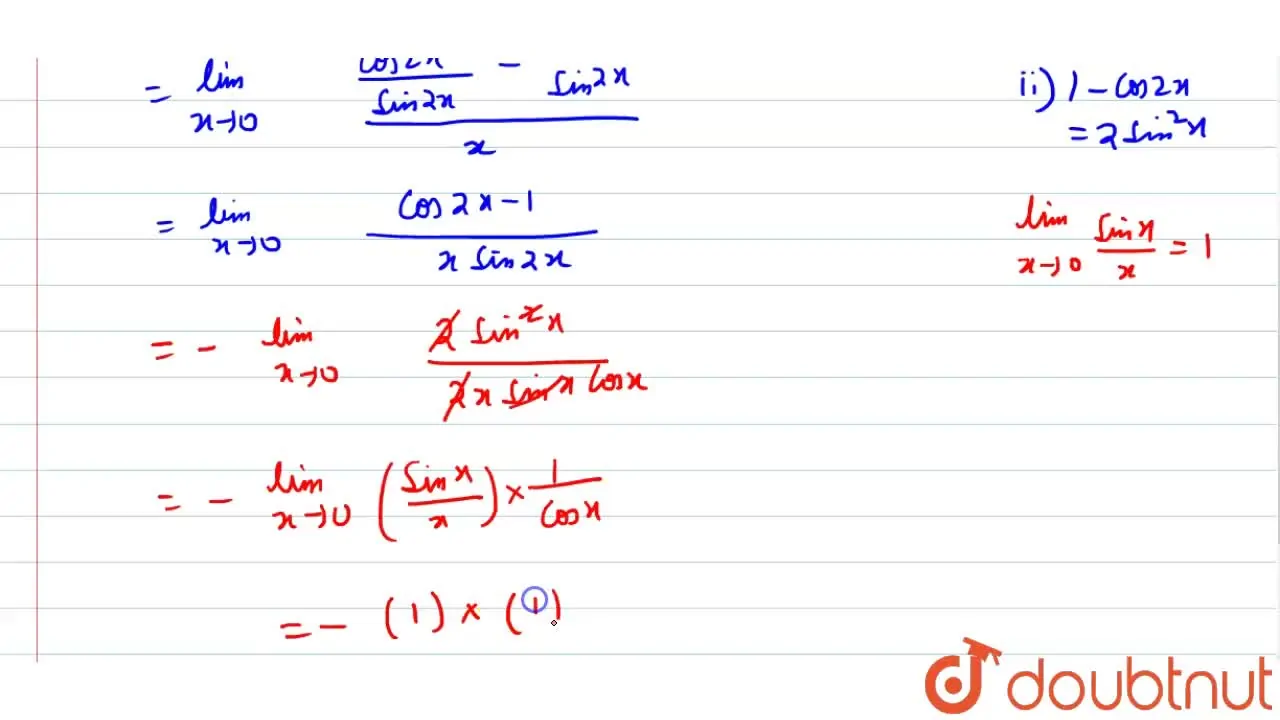 = lim x→0 (cos2x / sin2x - / sin2x) / x
= lim x→0 (cos2x-1) / (x sin2x)
= - lim x→0 (2 sin²x) / (2x sinx cosx)
= - lim x→0 (sinx / x) × 1 / cosx
= - (1) × (1)
ii) 1 - cos2x
= 2 sin²x
lim x→0 sinx / x = 1
doubtnut